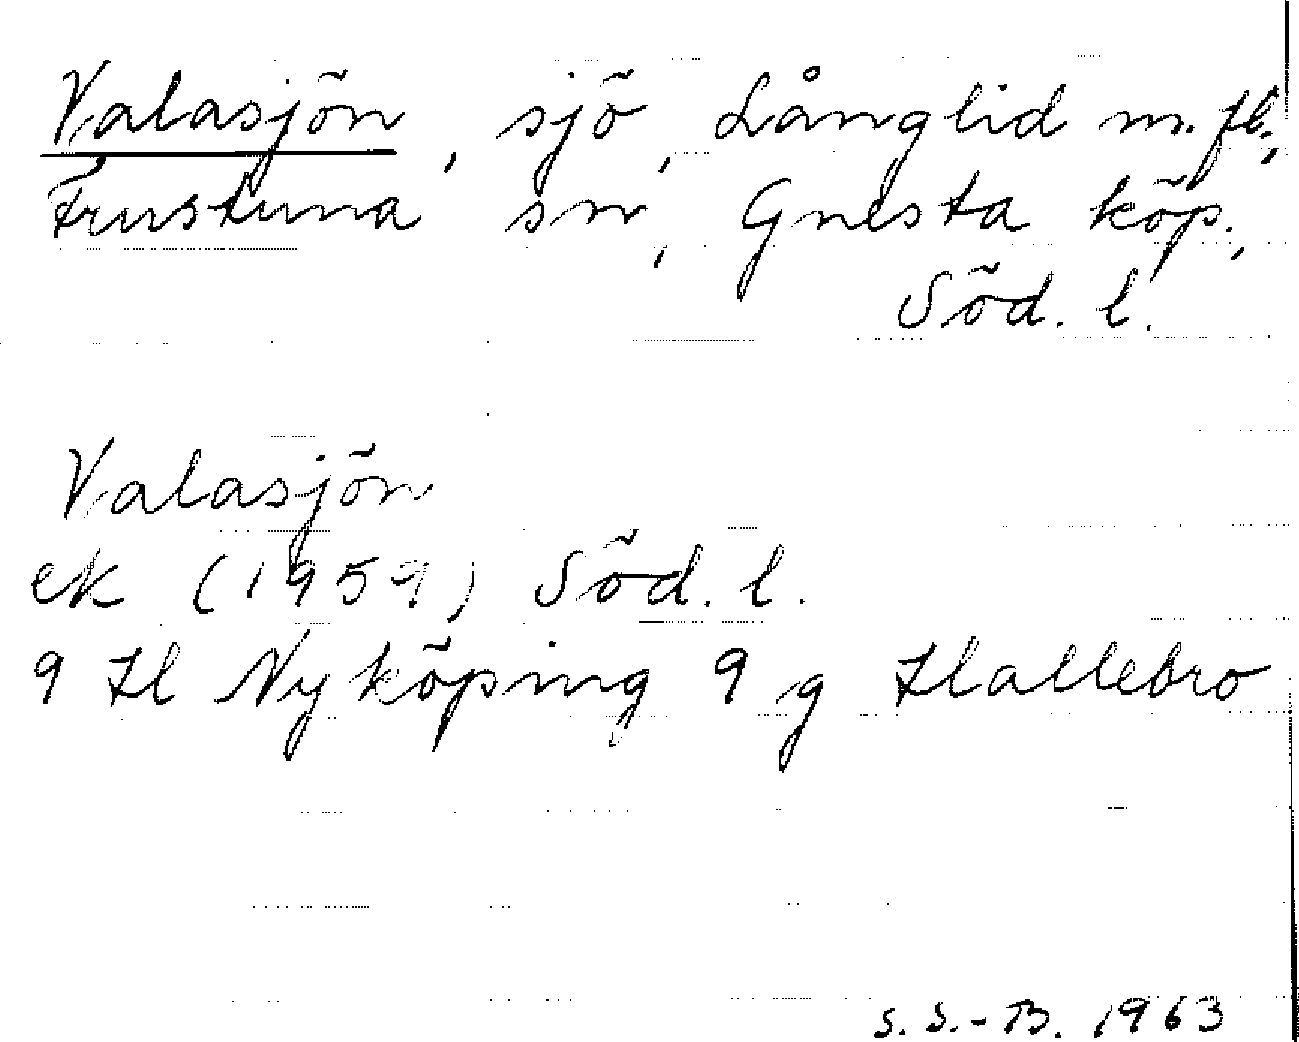 Valasjön, sjö, Långlid m.fl.,
Frustuna sn, Gnesta köp.,
Söd. l.
Valasjön
ek (1959) Söd. l.
9 H Nyköping 9 g Hallebro
S. S.-B. 1963